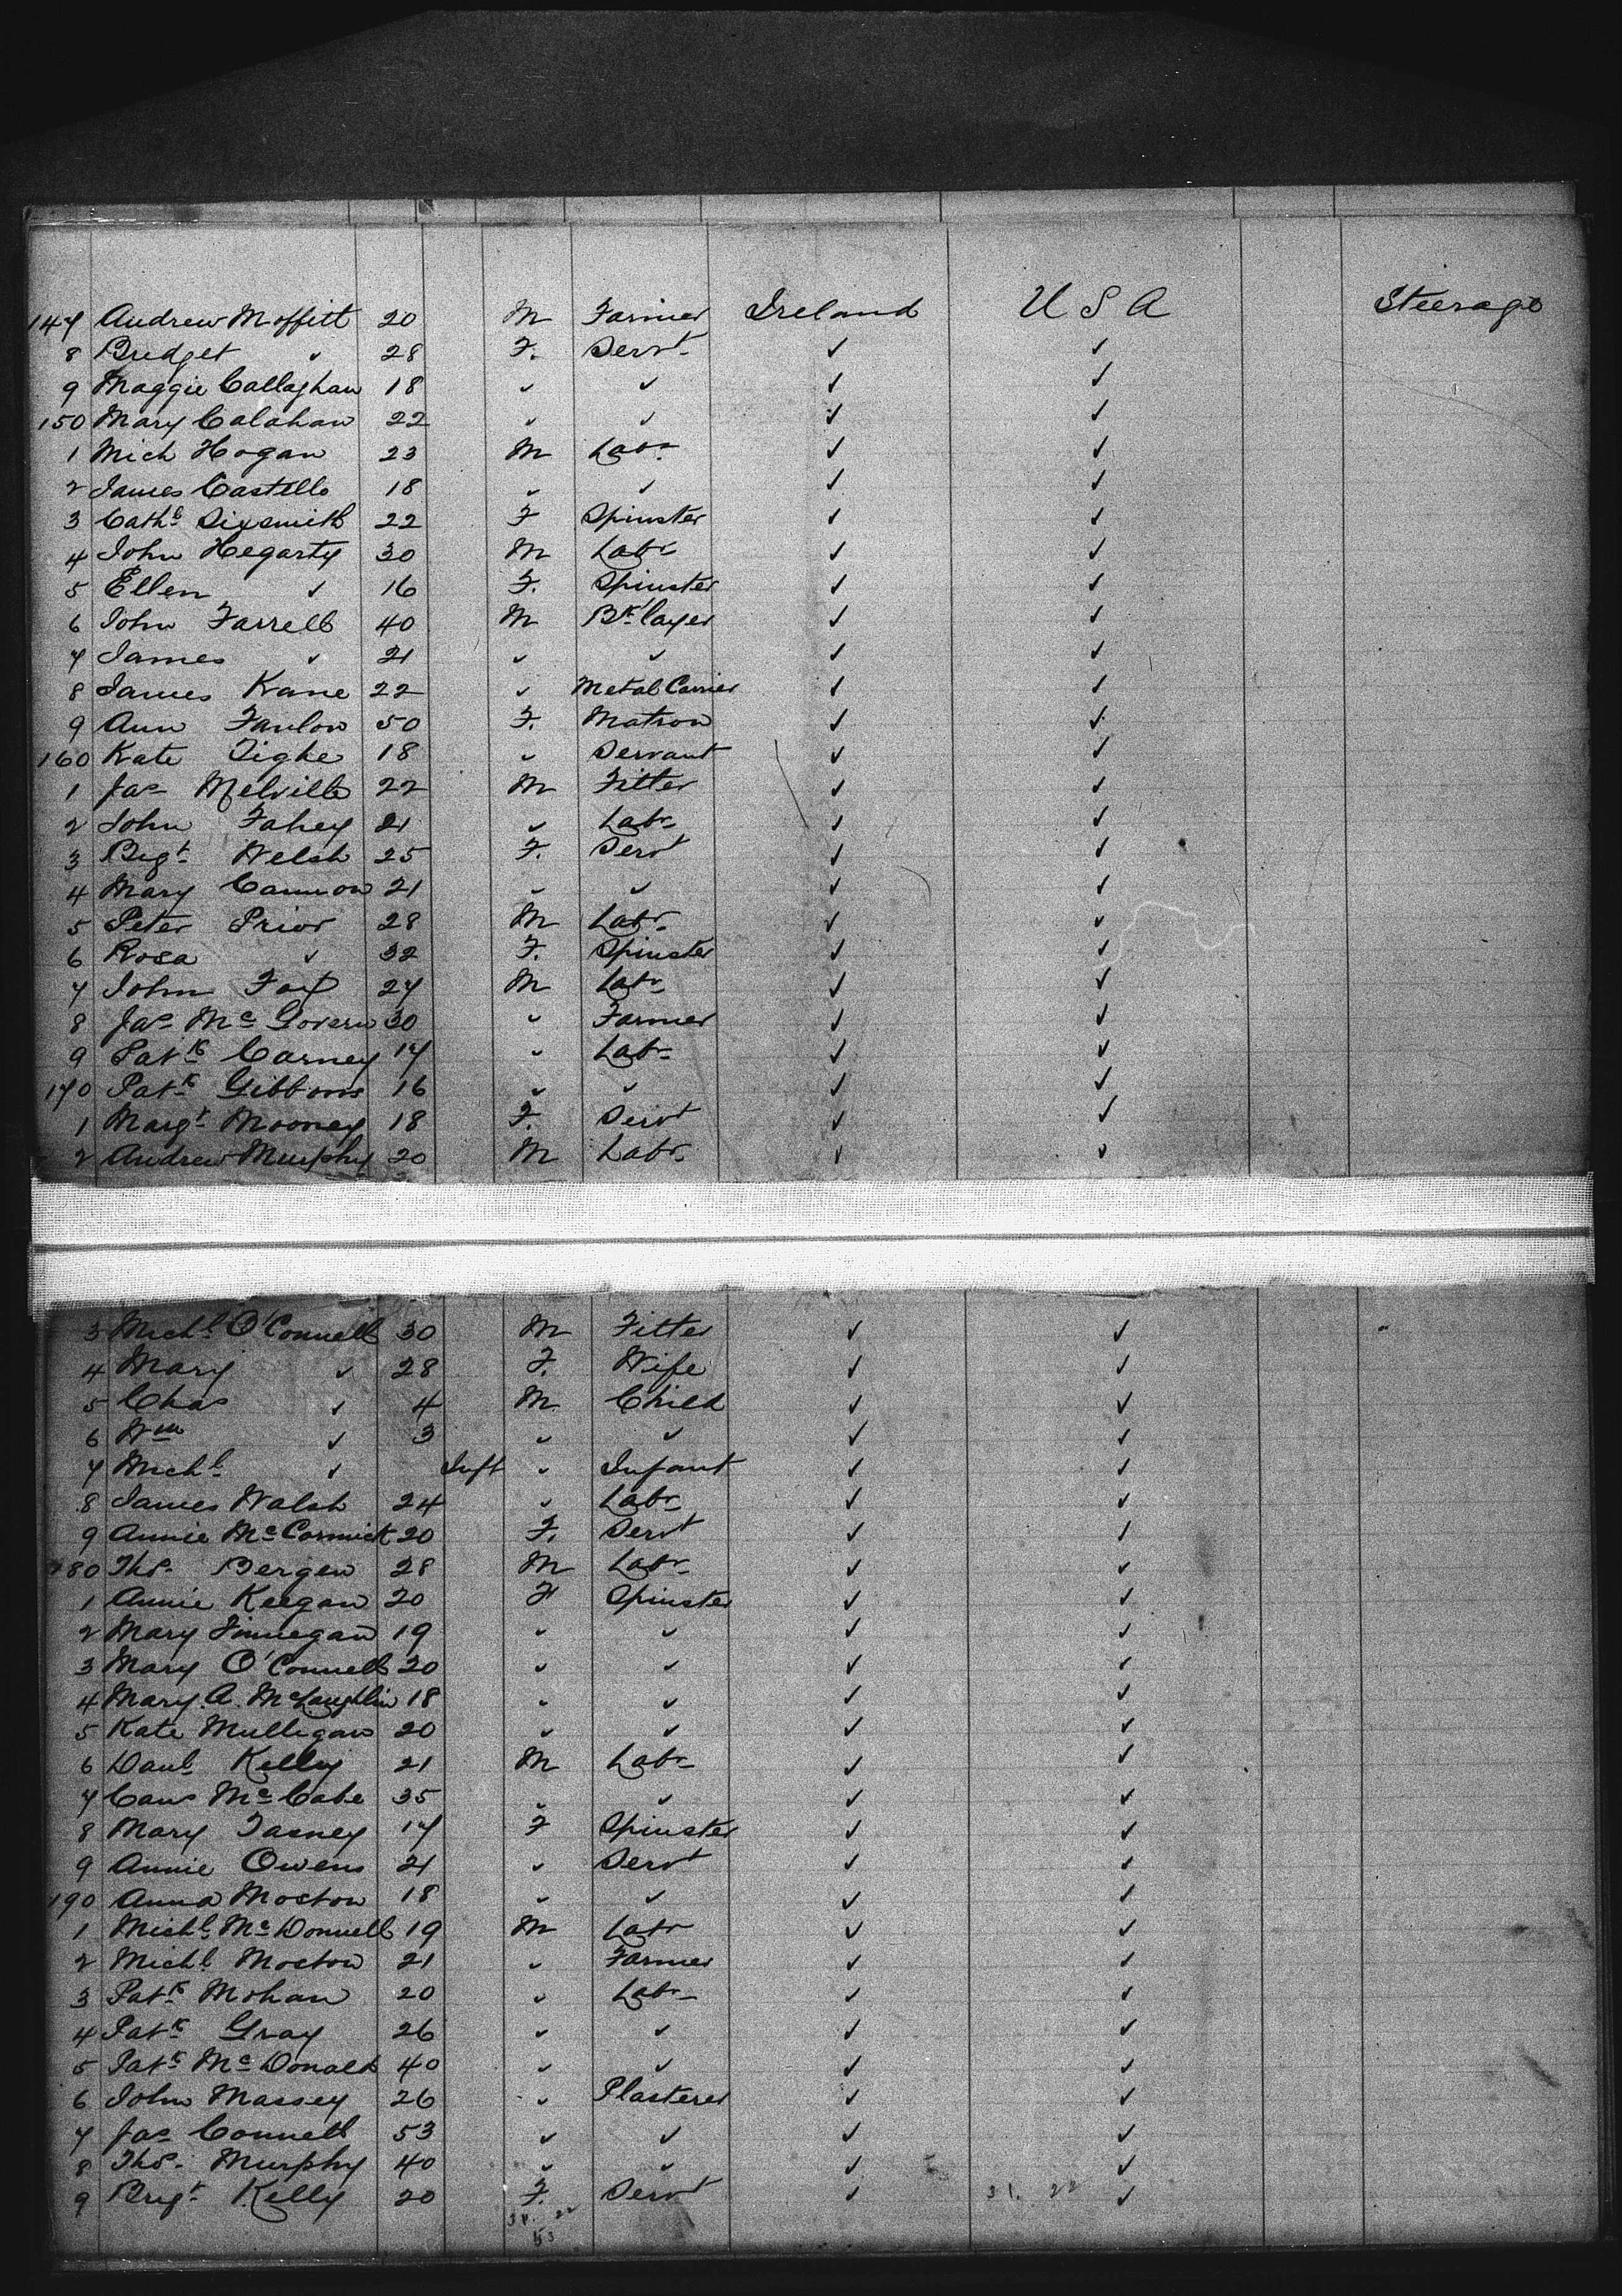 147 Andrew Moffitt 20 M Farmer Ireland U S A Steerage
8 Bridget ✓ 28 F. Servt ✓ ✓
9 Maggie Callaghan 18 ✓ ✓ ✓ ✓
150 Mary Calahan 22 ✓ ✓ ✓ ✓
1 Mich Hogan 23 M Labr ✓ ✓
2 James Costello 18 ✓ ✓ ✓ ✓
3 Cathe Sixsmith 22 F Spinster ✓ ✓
4 John Hegarty 30 M Labr ✓ ✓
5 Ellen ✓ 16 F. Spinster ✓ ✓
6 John Farrell 40 M Bk layer ✓ ✓
7 James ✓ 21 ✓ ✓ ✓ ✓
8 James Kane 22 ✓ Metal Carrier ✓ ✓
9 Ann Fanlon 50 F. Matron ✓ ✓
160 Kate Tighe 18 ✓ Servant ✓ ✓
1 Jas Melville 22 M Fitter ✓ ✓
2 John Fahey 21 ✓ Labr ✓ ✓
3 Bigt Welsh 25 F. Servt ✓ ✓
4 Mary Cannon 21 ✓ ✓ ✓ ✓
5 Peter Prior 28 M Labr ✓ ✓
6 Rosa ✓ 32 F. Spinster ✓ ✓
7 John Fox 27 M Labr ✓ ✓
8 Jas Mc Govern 30 ✓ Farmer ✓ ✓
9 Patk Carney 17 ✓ Labr ✓ ✓
170 Patk Gibbons 16 ✓ ✓ ✓ ✓
1 Margt Mooney 18 F. Servt ✓ ✓
2 Andrew Murphy 20 M Labr. ✓ ✓
3 Michl O'Connell 30 M Fitter ✓ ✓ "
4 Mary ✓ 28 F. Wife ✓ ✓
5 Chas ✓ 4 M. Child ✓ ✓
6 Wm ✓ 3 ✓ ✓ ✓ ✓
7 Michl ✓ Inft ✓ Infant ✓ ✓
8 James Walsh 24 ✓ Labr ✓ ✓
9 Annie Mc Cormick 20 F. Servt ✓ ✓
180 Thos. Bergen 28 M Labr ✓ ✓
1 Annie Keegan 20 F Spinster ✓ ✓
2 Mary Finnegan 19 ✓ ✓ ✓ ✓
3 Mary O'Connell 20 ✓ ✓ ✓ ✓
4 Mary. A. McLaughlin 18 ✓ ✓ ✓ ✓
5 Kate Mulligan 20 ✓ ✓ ✓ ✓
6 Danl Kelly 21 M Labr ✓ ✓
7 Mc Cabe 35 ✓ ✓ ✓ ✓
8 Mary Tasney 17 F Spinster ✓ ✓
9 Annie Owens 21 ✓ Servt ✓ ✓
190 Anna Morton 18 ✓ ✓ ✓ ✓
1 Michl Mc Donnell 19 M Labr ✓ ✓
2 Michl Morton 21 ✓ Farmer ✓ ✓
3 Patk Mohan 20 ✓ Labr ✓ ✓
4 Patk Gray 26 ✓ ✓ ✓ ✓
5 Patk Mc Donald 40 ✓ ✓ ✓ ✓
6 John Massey 26 ✓ Plasterer ✓ ✓
7 Jas Connell 53 ✓ ✓ ✓ ✓
8 Thos. Murphy 40 ✓ ✓ ✓ ✓
9 Brigt Kelly 20 F. Servt ✓ 31. 22 ✓
31. 22
53